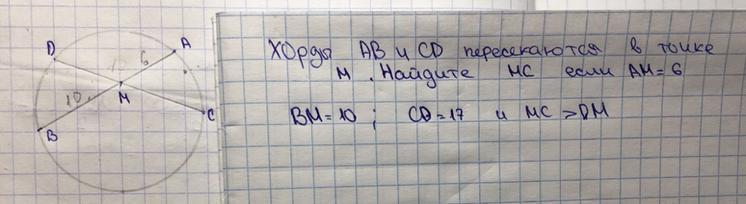 D
6
A
10
M
C
B
Хорды AB и CD пересекаются в точке
M. Найдите MC если AM=6
BM=10; CD=17 и MC>DM